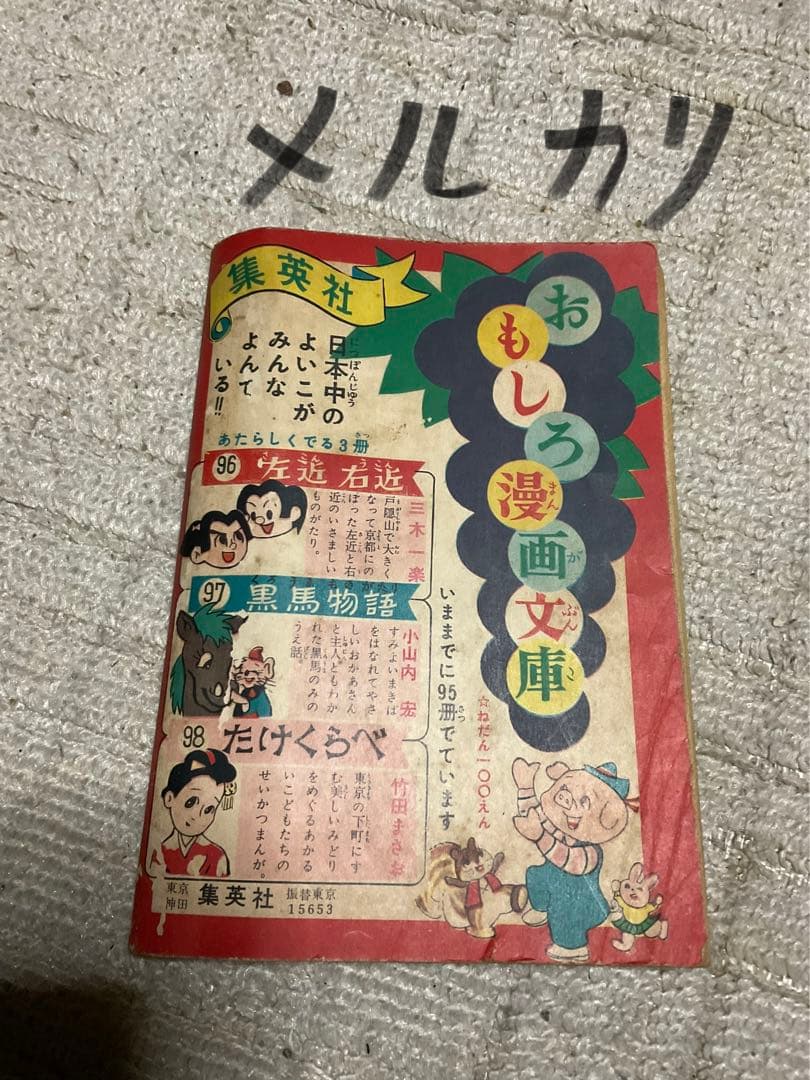 メルカリ
集英社
日本中の
よいこが
みんな
よんで
いる!!
おもしろ漫画文庫
あたらしくでる3冊
96 左近 右近
三木一楽
戸隠山で大きく
なって京都にの
ぼった左近と右
近のいさましい
ものがたり。
97 黒馬物語
小山内 宏
すみよいまきば
をはなれてやさ
しいおかあさん
と主人ともわか
れた黒馬のみの
うえ話。
98 たけくらべ
竹田まさお
東京の下町にす
む美しいみどり
をめぐるあかる
いこどもたちの
せいかつまんが。
いままでに95冊でています
☆ねだん一〇〇えん
東京
神田
集英社
振替東京
15653